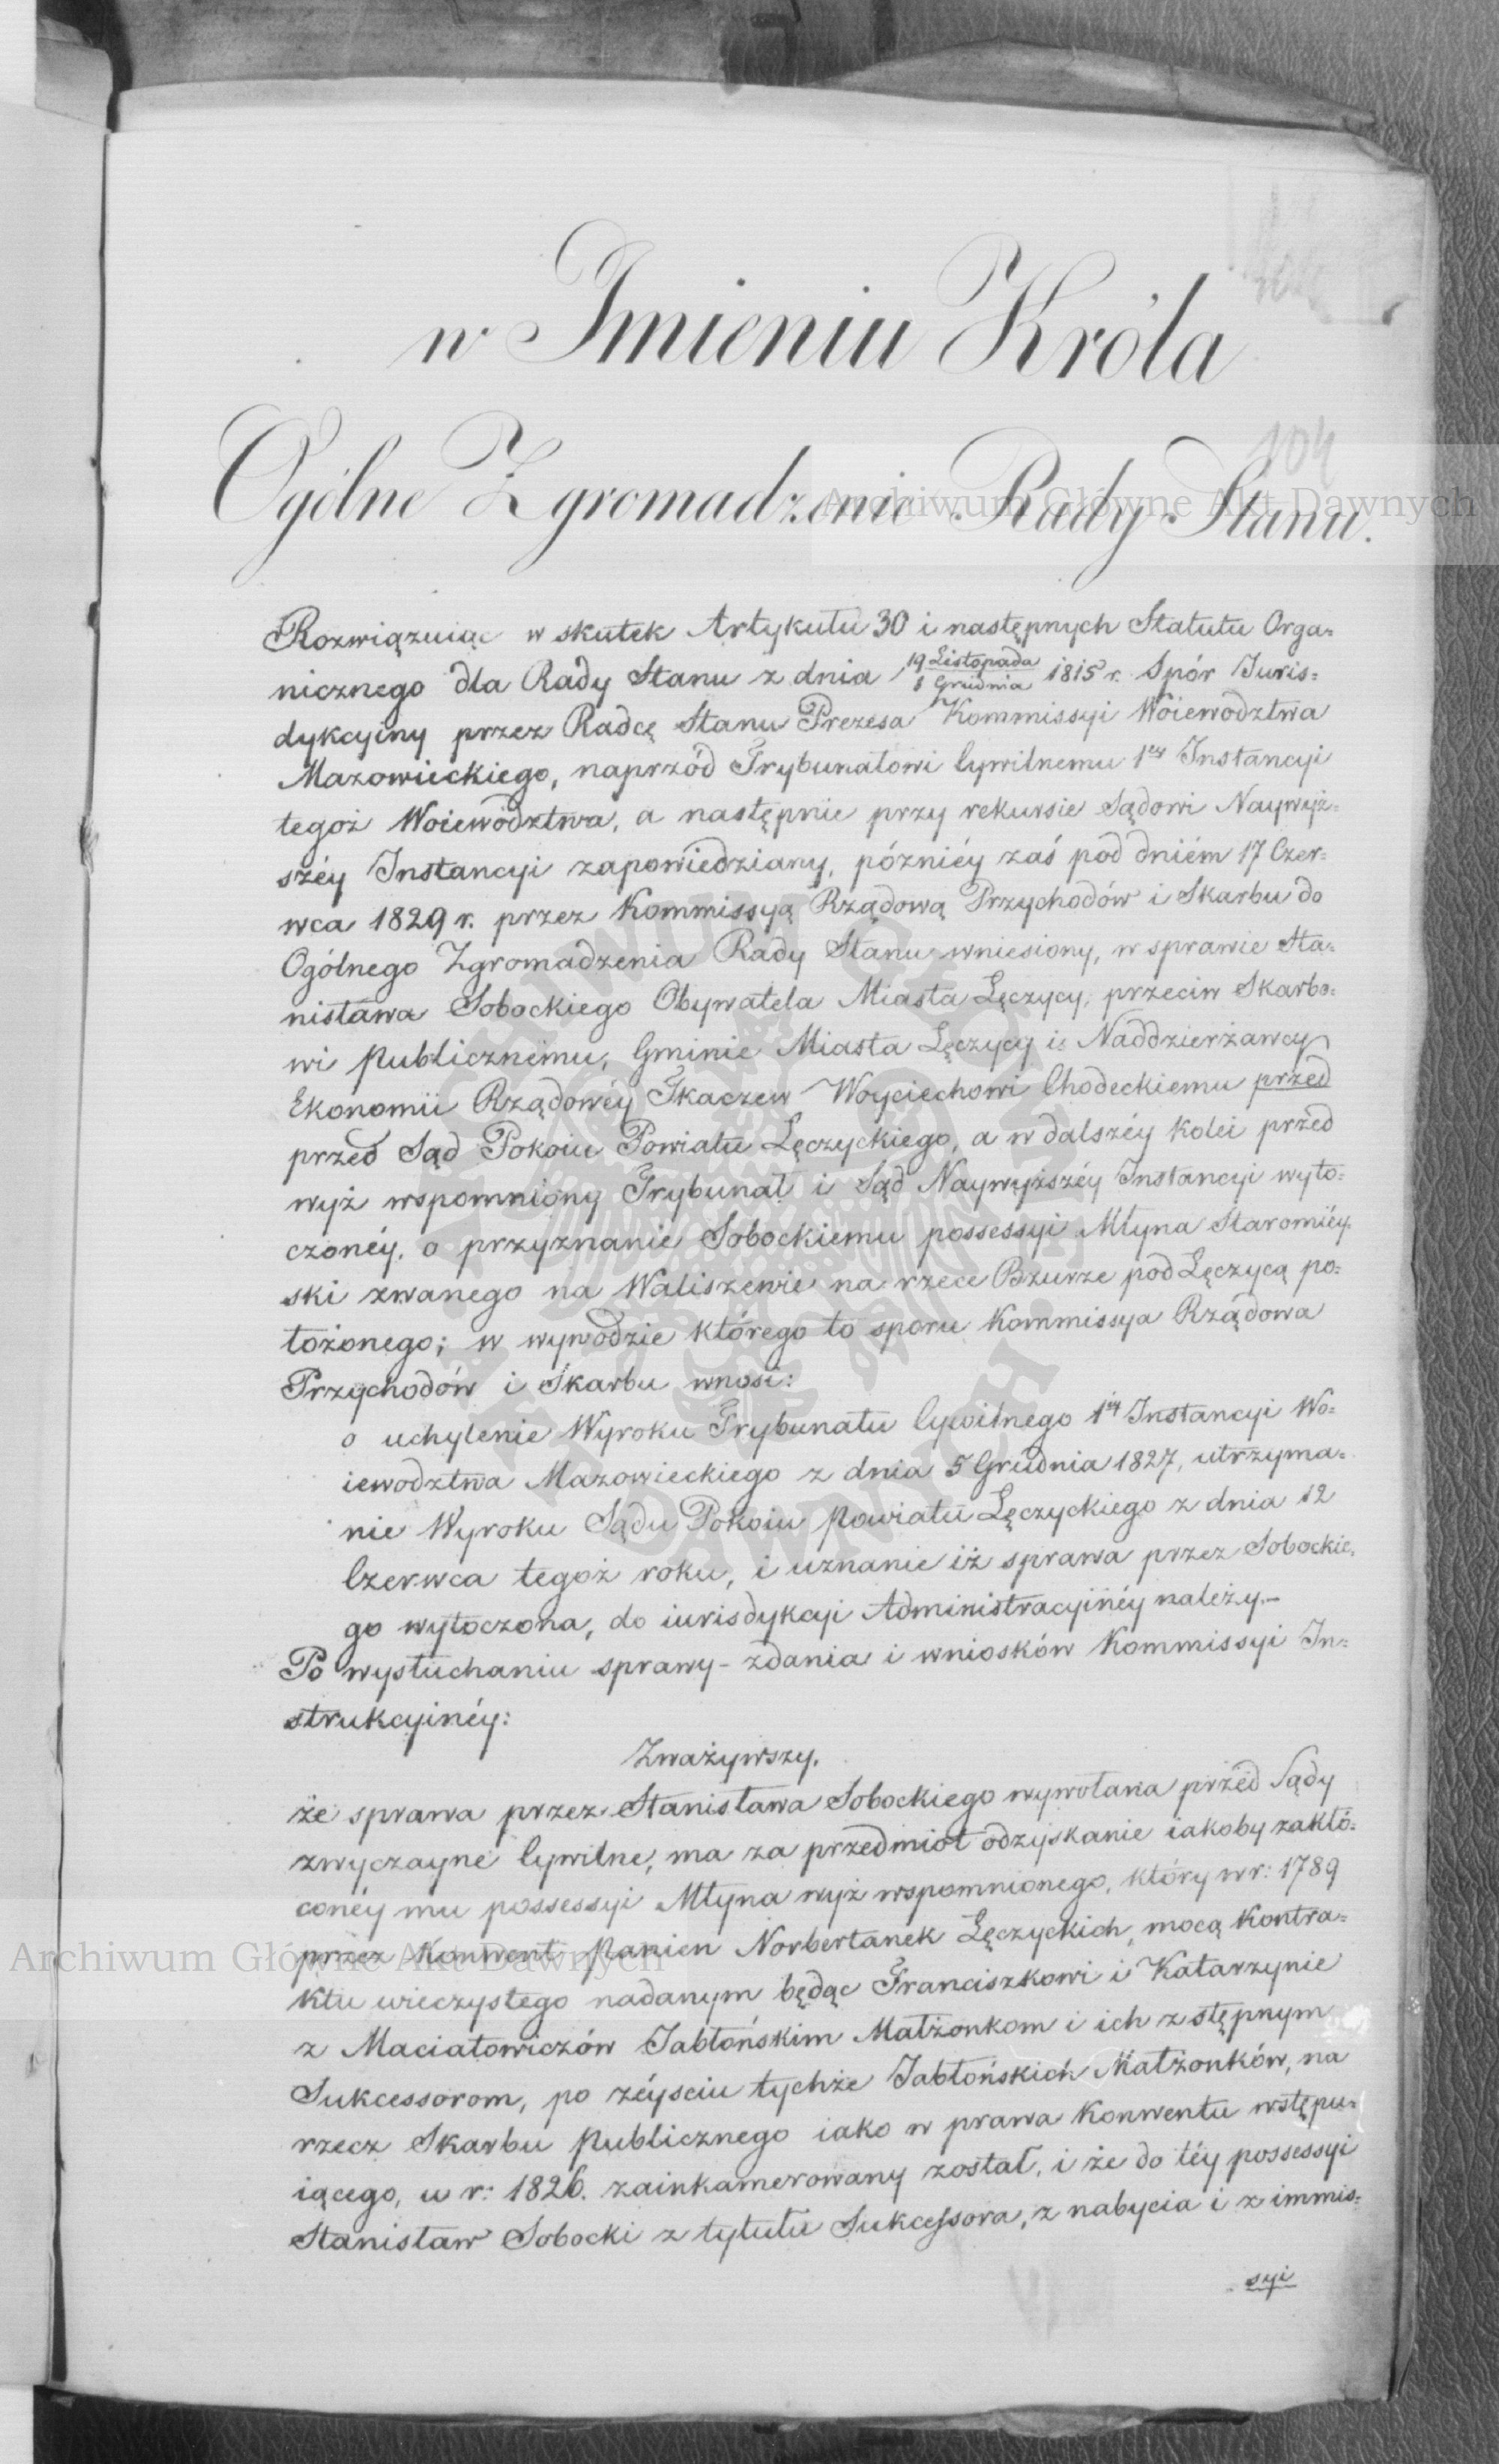 104
w Imieniu Króla
Ogólne Zgromadzenie Rady Stanu.
Archiwum Główne Akt Dawnych
Rozwiązuiąc w skutek Artykułu 30 i następnych Statutu Orga=
nicznego dla Rady Stanu z dnia 19 Listopada / 1 Grudnia 1815 r. Spór Juris=
dykcyiny przez Radcę Stanu Prezesa Kommissyi Woiewodztwa
Mazowieckiego, naprzód Trybunałowi Cywilnemu 1éy Instancyi
tegoż Woiewództwa, a następnie przy rekursie Sądowi Naywyż=
széy Instancyi zapowiedziany, późniéy zaś pod dniém 17 Czer=
wca 1829 r. przez Kommissyą Rządową Przychodów i Skarbu do
Ogólnego Zgromadzenia Rady Stanu wniesiony, w sprawie Sta=
nisława Sobockiego Obywatela Miasta Łęczycy, przeciw Skarbo=
wi Publicznemu, Gminie Miasta Łęczycy i Naddzierżawcy
Ekonomii Rządowéy Tkaczew Woyciechowi Chodeckiemu przed
przed Sąd Pokoiu Powiatu Łęczyckiego, a w dalszéy kolei przed
wyż wspomniony Trybunał i Sąd Naywyższéy Instancyi wyto=
czonéy, o przyznanie Sobockiemu possessyi Młyna Staromiéy=
ski zwanego na Waliszewie na rzece Bzurze pod Łęczycą po=
łożonego; w wywodzie którego to sporu Kommissya Rządowa
Przychodów i Skarbu wnosi:
o uchylenie Wyroku Trybunału Cywilnego 1éy Instancyi Wo=
iewodztwa Mazowieckiego z dnia 5 Grudnia 1827, utrzyma=
nie Wyroku Sądu Pokoiu Powiatu Łęczyckiego z dnia 12
Czerwca tegoż roku, i uznanie iż sprawa przez Sobockie=
go wytoczona, do iurisdykcyi Administracyinéy należy.–
Po wysłuchaniu sprawy – zdania i wniosków Kommissyi In=
strukcyinéy:
Zważywszy.
że sprawa przez Stanisława Sobockiego wywołana przed Sądy
zwyczayne Cywilne, ma za przedmiot odzyskanie iakoby zakłó=
conéy mu possessyi Młyna wyż wspomnionego, który w r: 1789
przez Konwent Panien Norbertanek Łęczyckich, mocą Kontra=
Archiwum Główne Akt Dawnych
ktu wieczystego nadanym będąc Franciszkowi i Katarzynie
z Maciatowiczów Jabłońskim Małżonkom i ich zstępnym
Sukcessorom, po zéyściu tychże Jabłońskich Małżonków, na
rzecz Skarbu Publicznego iako w prawa Konwentu wstępu=
iącego, w r: 1826. zainkamerowany został, i że do téy possessyi
Stanisław Sobocki z tytułu Sukcessora, z nabycia i z immis=
syi